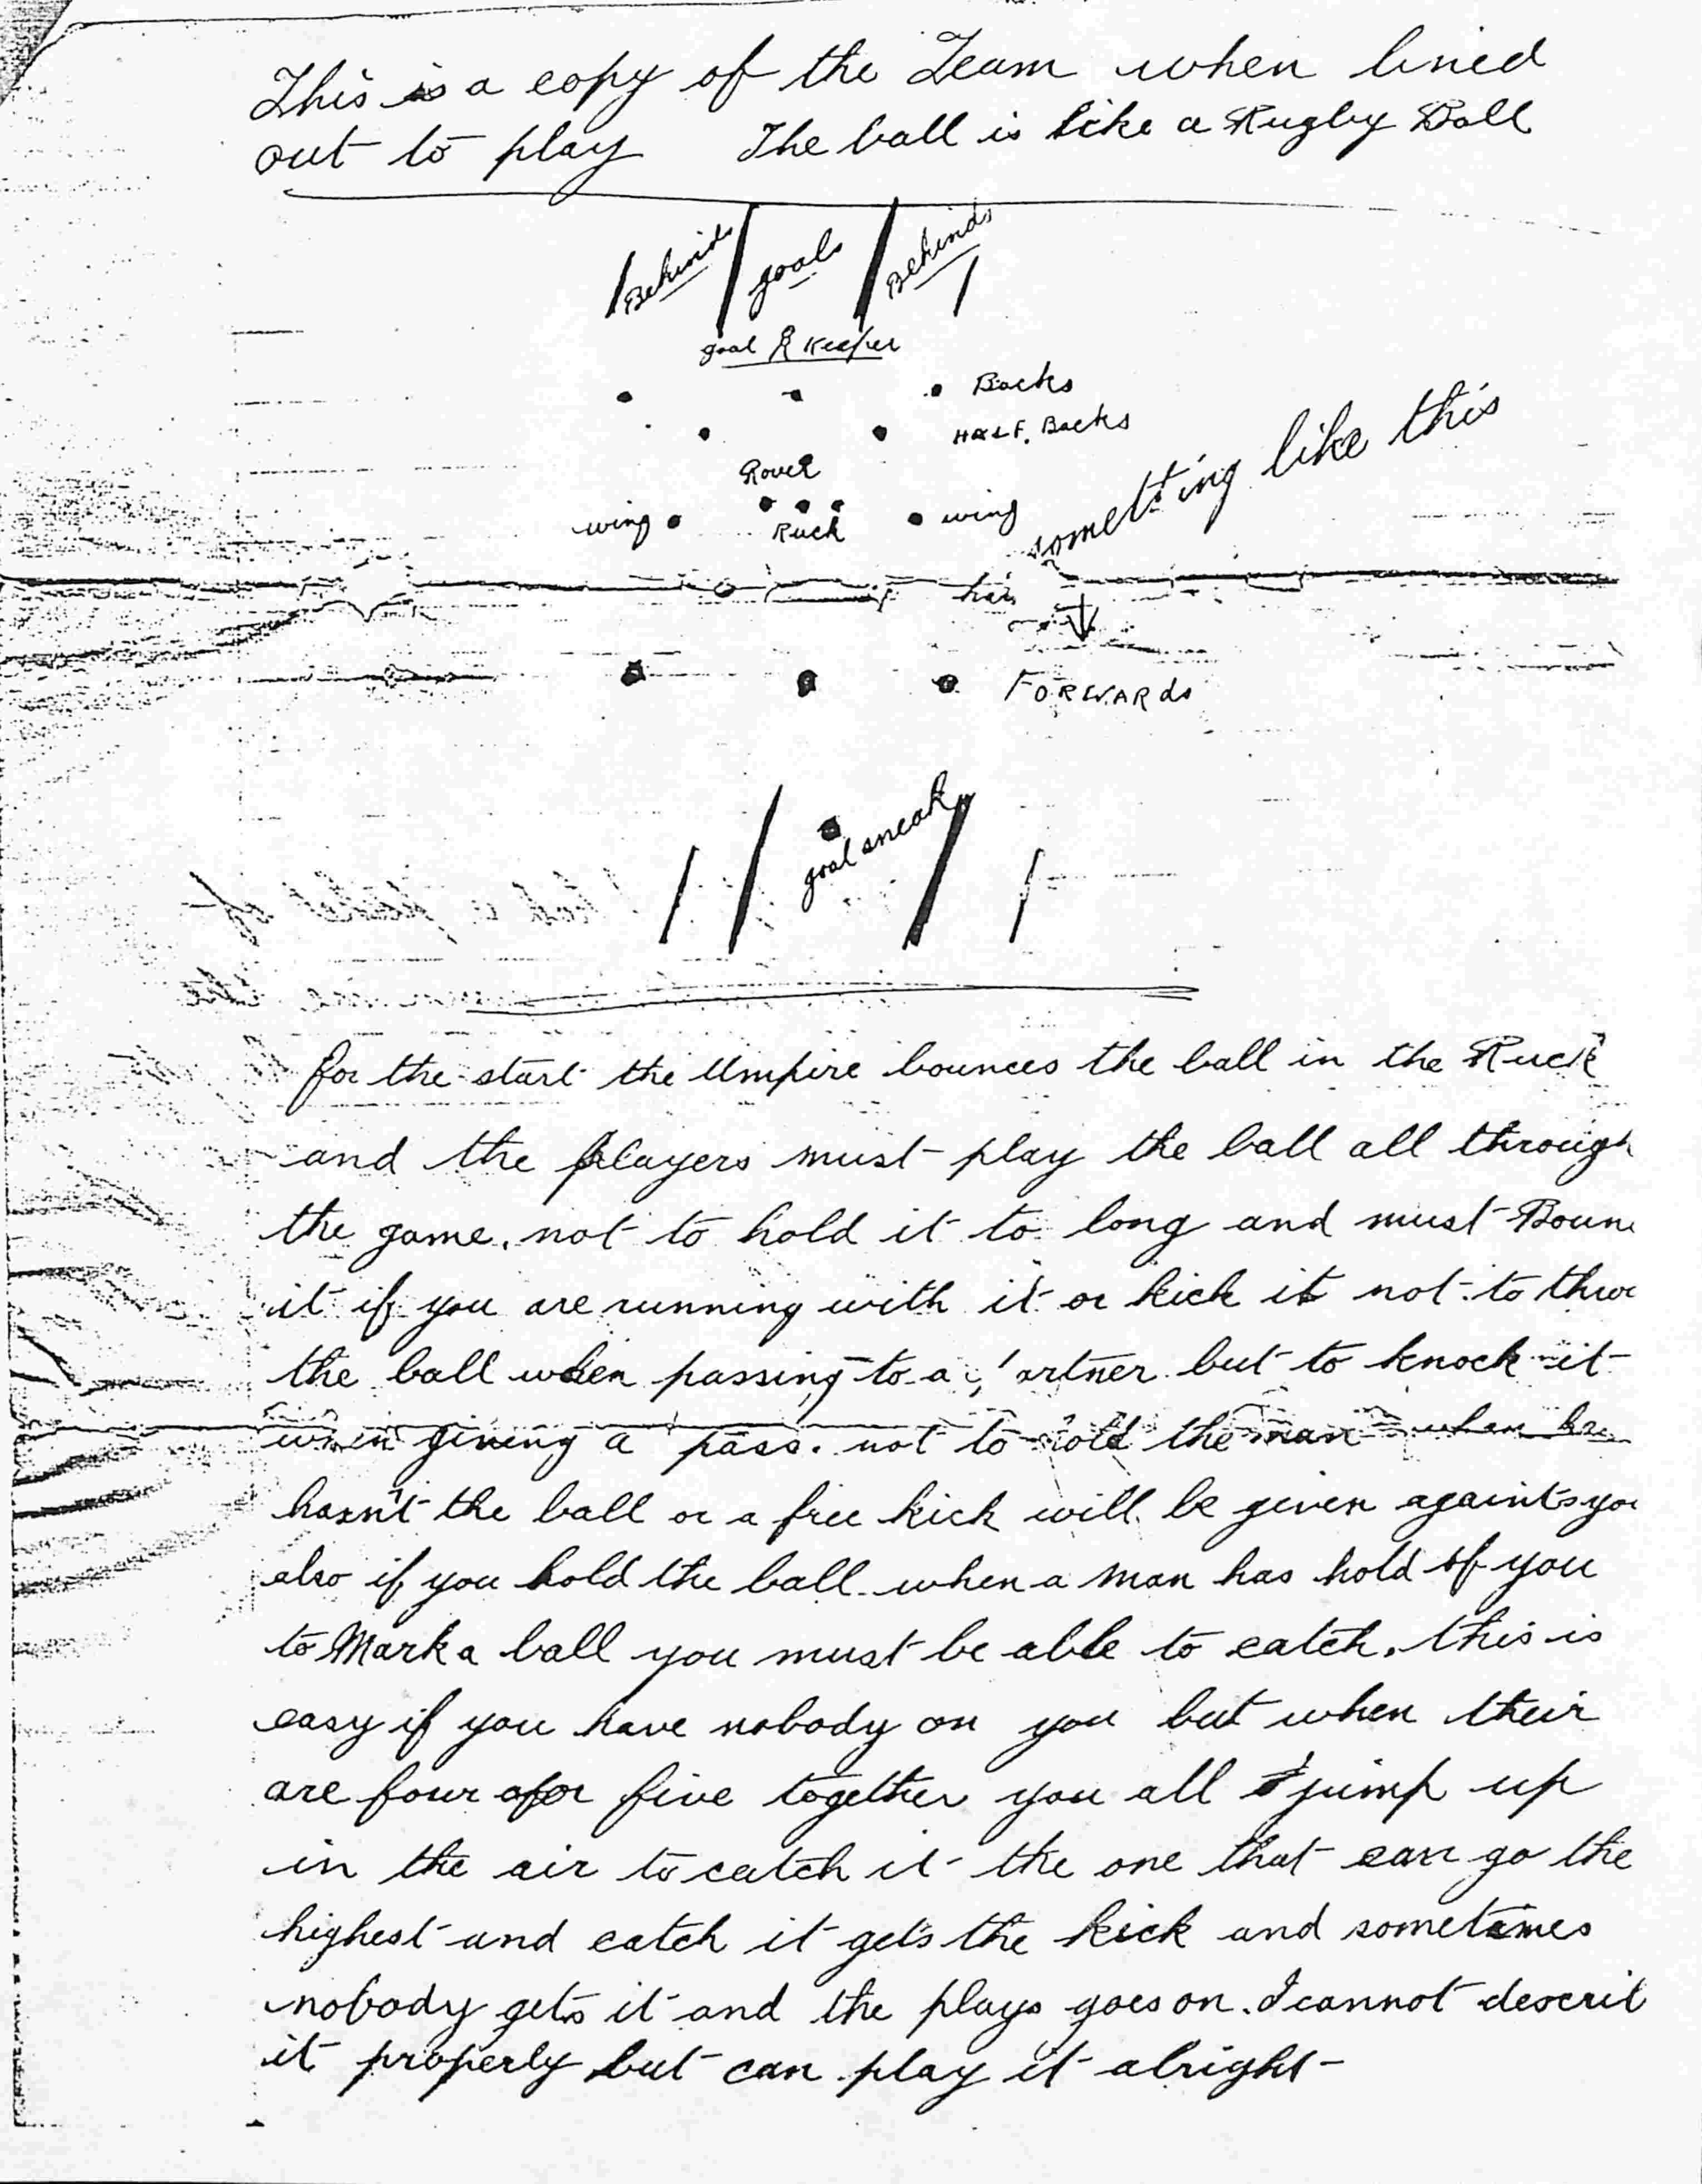 This is a copy of the Team when lined
out to play The ball is like a Rugby Ball
Behinds goals Behinds
goal keeper
Backs
HALF. Backs
Rover
wing wing
Ruck
something like this
FORWARds
goal sneak
for the start the Umpire bounces the ball in the Ruck
and the players must play the ball all through
the game. not to hold it to long and must Boun
it if you are running with it or kick it not to thro
the ball when passing to a artner but to knock it
when giving a pass. not to hold the man when he
hasn't the ball or a free kick will be given againts you
also if you hold the ball when a man has hold of you
to Mark a ball you must be able to catch. this is
easy if you have nobody on you but when their
are four or five together you all jump up
in the air to catch it the one that can go the
highest and catch it gets the kick and sometimes
nobody gets it and the plays goes on. I cannot describ
it properly but can play it alright